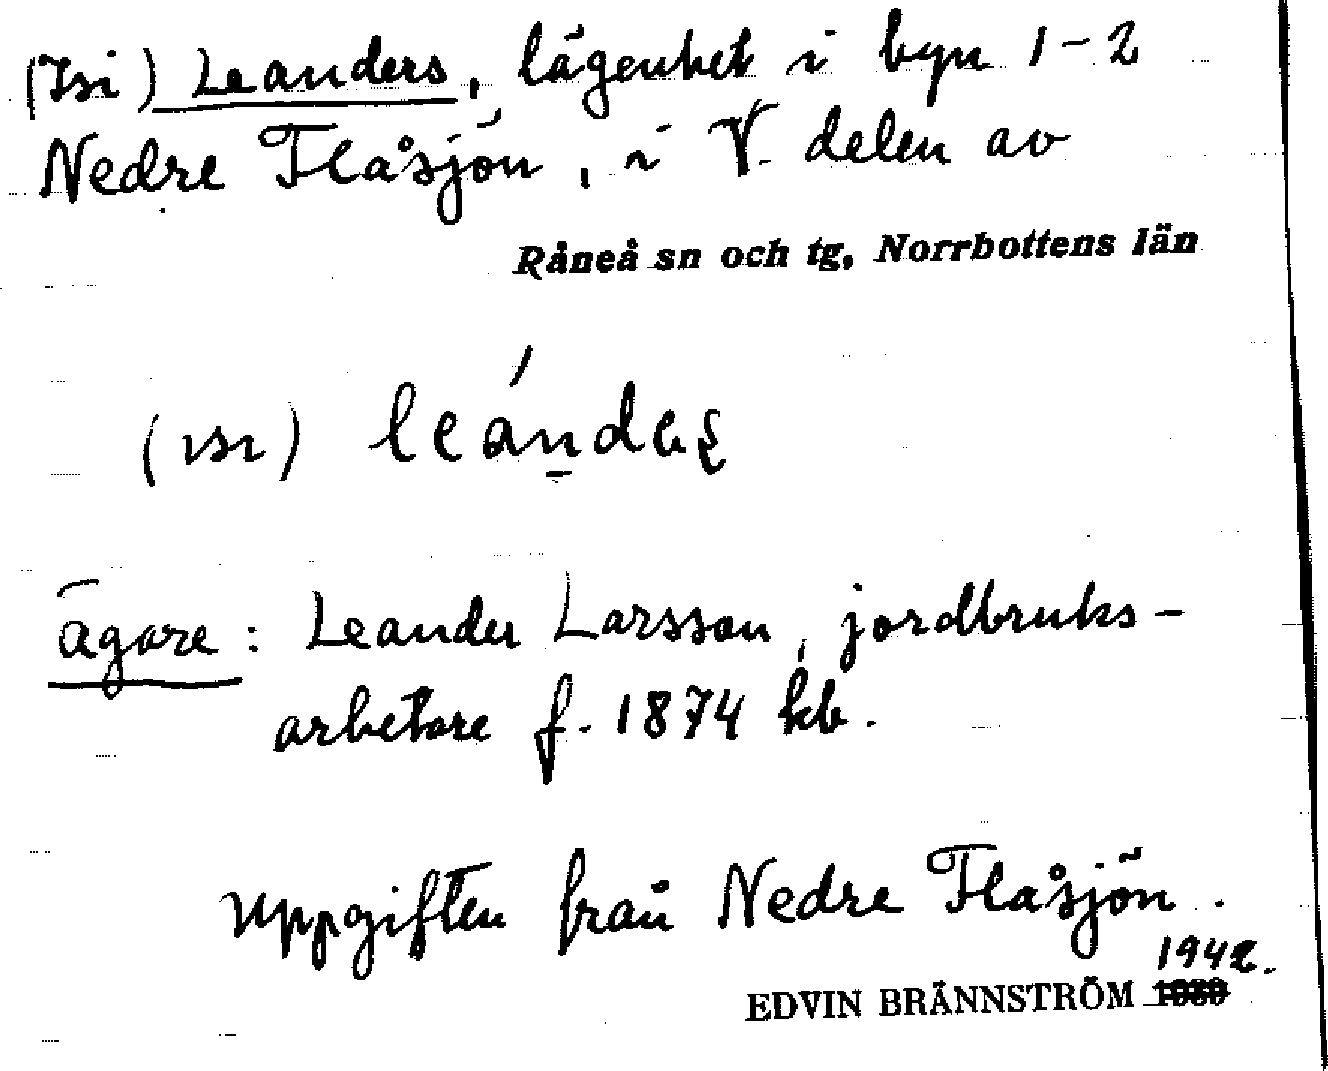 (Isi) Leanders, lägenhet i byn 1-2
Nedre Flåsjön, i V. delen av
Råneå sn och tg, Norrbottens län
(ısı) leándeʂ
ägare: Leander Larsson, jordbruks-
arbetare f. 1874 kb.
Uppgiften från Nedre Flåsjön.
1942.
EDVIN BRÄNNSTRÖM 1939